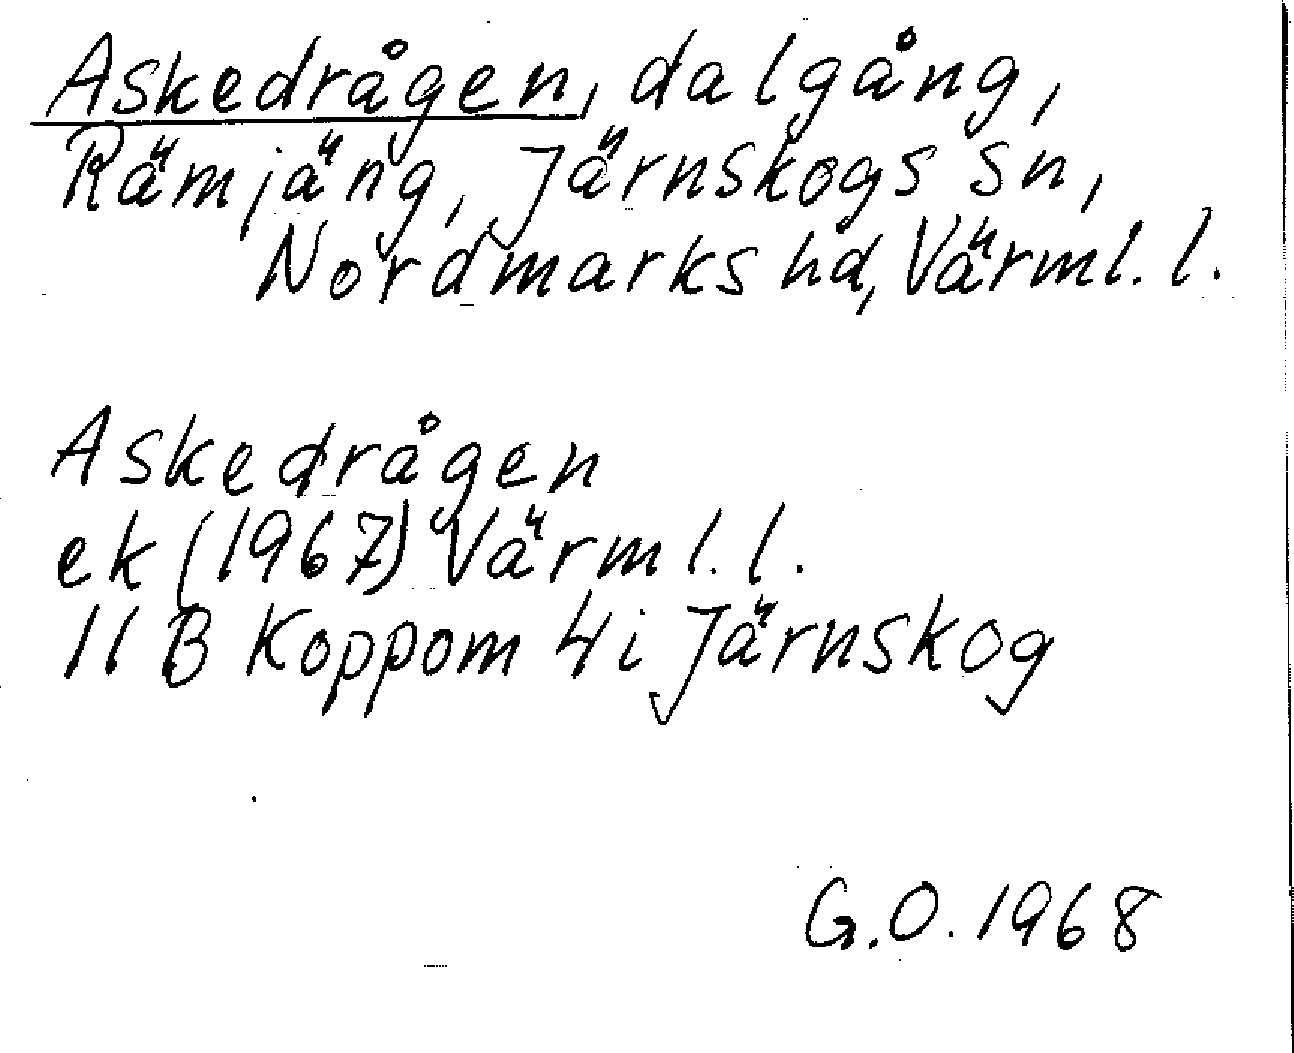 Askedrågen, dalgång,
Rämjäng, Järnskogs sn,
Nordmarks hd, Värml. l.
Askedrågen
ek (1967) Värml. l.
11 B Koppom 4i Järnskog
G.O. 1968